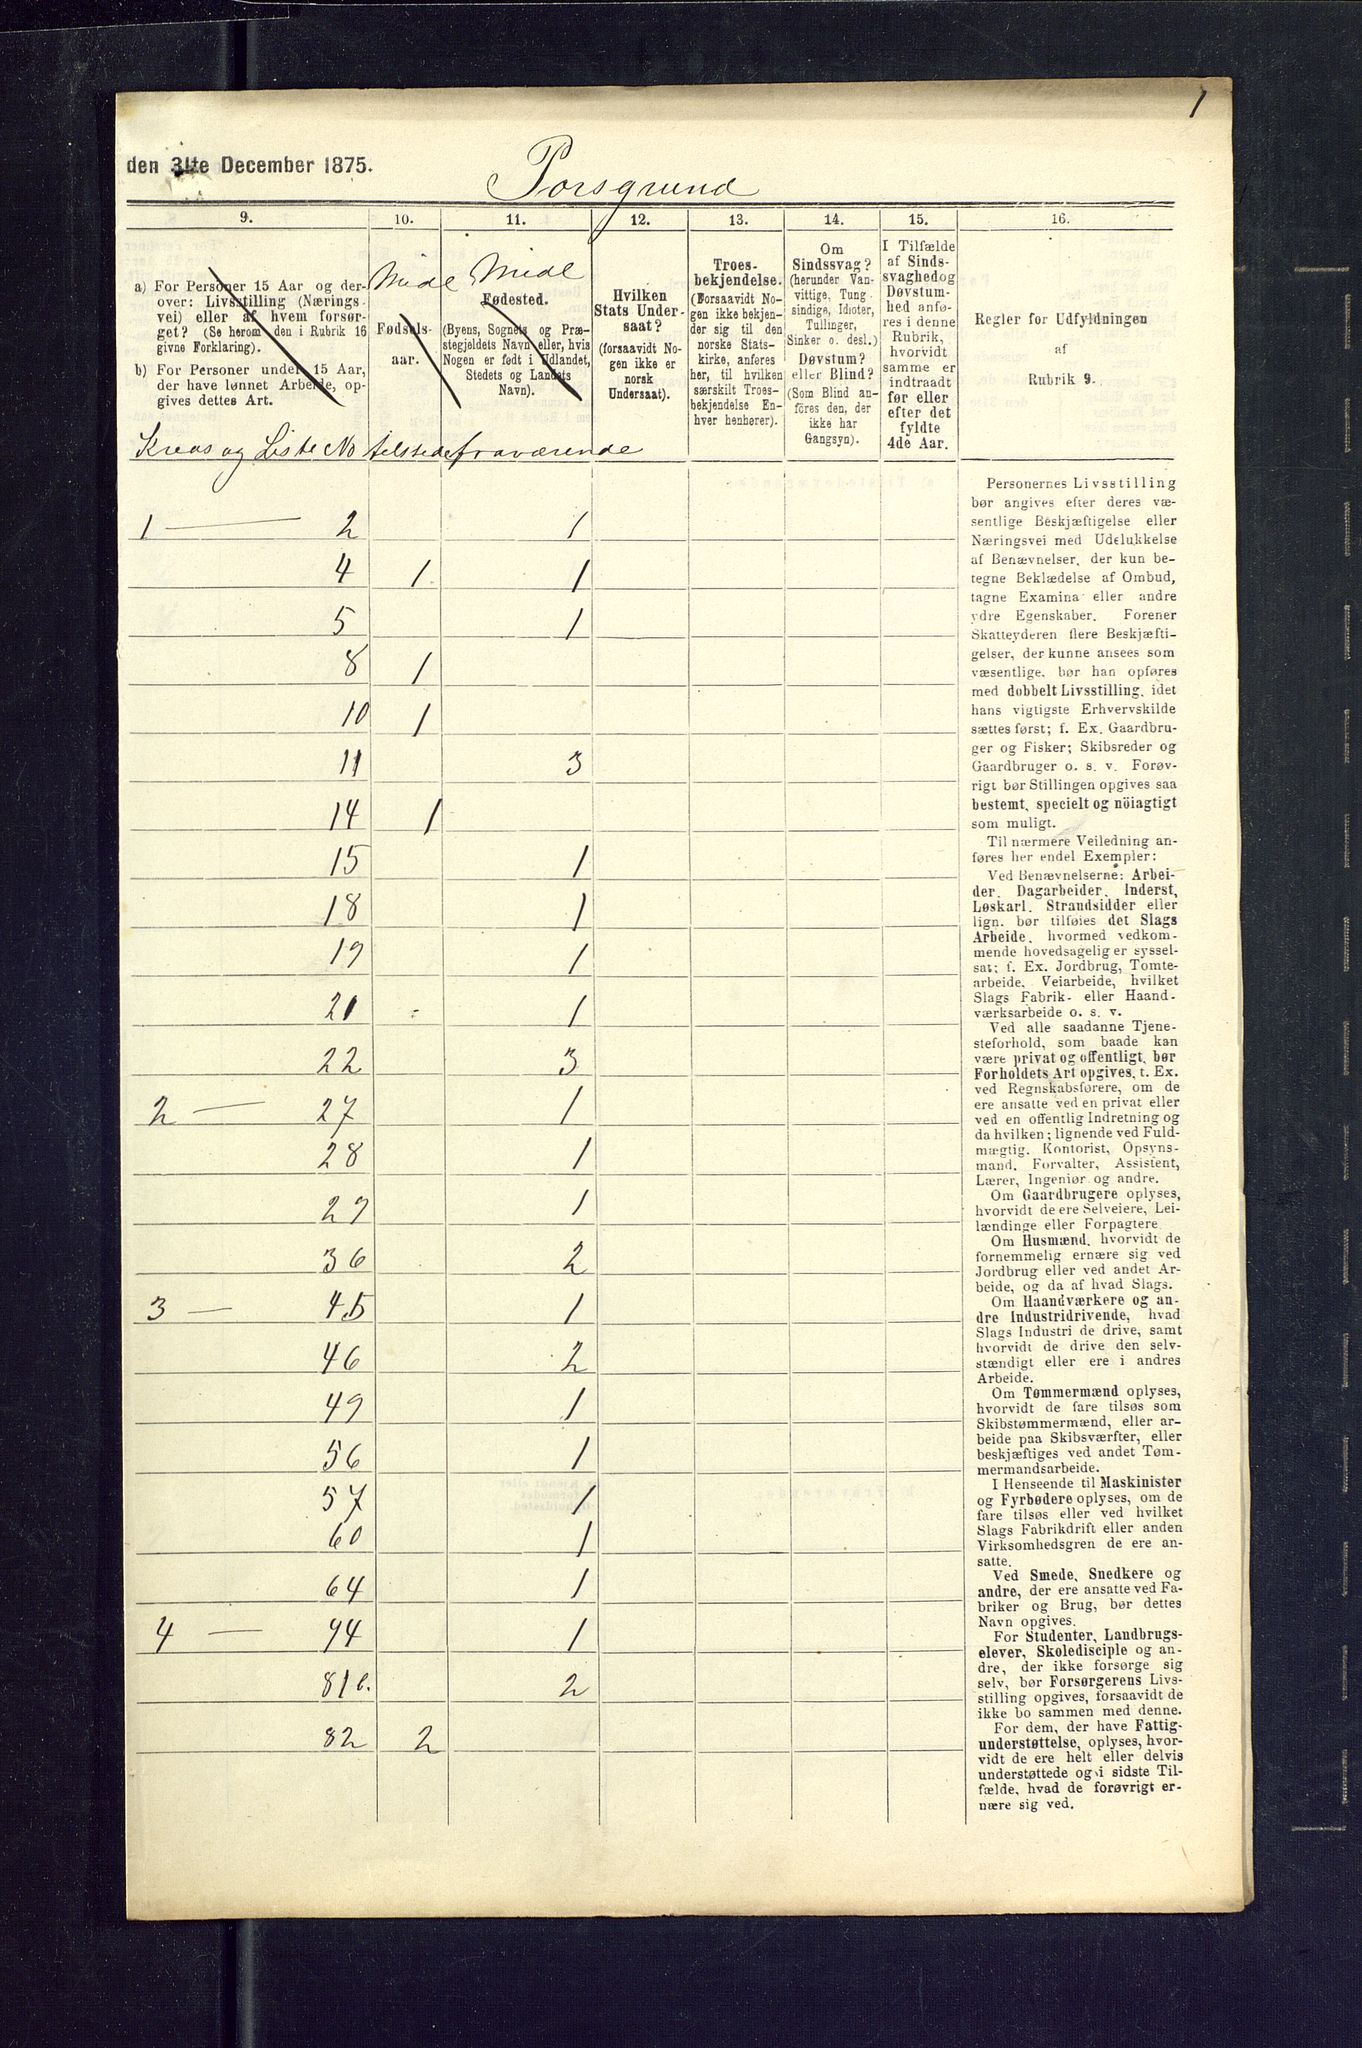 1
den 31te December 1875.
Porsgrund
9. 10. 11. 12. 13. 14. 15. 16.
a) For Personer 15 Aar og der-
over: Livsstilling (Nærings-
vei) eller af hvem forsør-
get? (Se herom den i Rubrik 16
givne Forklaring).
b) For Personer under 15 Aar,
der have lønnet Arbeide, op-
gives dettes Art.
Midl
Fødsels-
aar.
Midl
Fødested.
(Byens, Sognets og Præ-
stegjeldets Navn eller, hvis
Nogen er født i Udlandet,
Stedets og Landets
Navn).
Hvilken
Stats Under-
saat?
(forsaavidt No-
gen ikke er
norsk
Undersaat).
Troes-
bekjendelse.
(Forsaavidt No-
gen ikke bekjen-
der sig til den
norske Stats-
kirke, anføres
her, til hvilken
særskilt Troes-
bekjendelse En-
hver henhører).
Om
Sindssvag?
(herunder Van-
vittige, Tung-
sindige, Idioter,
Tullinger,
Sinker o. desl.)
Døvstum?
eller Blind?
(Som Blind an-
føres den, der
ikke har
Gangsyn).
I Tilfælde
af Sinds-
svaghed og
Døvstum-
hed anfø-
res i denne
Rubrik,
hvorvidt
samme er
indtraadt
før eller
efter det
fyldte
4de Aar.
Regler for Udfyldningen
af
Rubrik 9.
Kreds og Liste No tilstede fraværende
1 — 2 1
4 1 1
5 1
8 1
10 1
11 3
14 1
15 1
18 1
19 1
21 1
22 3
2 — 27 1
28 1
29 1
36 2
3 — 45 1
46 2
49 1
56 1
57 1
60 1
64 1
4 — 94 1
81 b. 2
82 2
Personernes Livsstilling
bør angives efter deres væ-
sentlige Beskjæftigelse eller
Næringsvei med Udelukkelse
af Benævnelser, der kun be-
tegne Beklædelse af Ombud,
tagne Examina eller andre
ydre Egenskaber. Forener
Skatteyderen flere Beskjæfti-
gelser, der kunne ansees som
væsentlige, bør han opføres
med dobbelt Livsstilling, idet
hans vigtigste Erhvervskilde
sættes først; f. Ex. Gaardbru-
ger og Fisker; Skibsreder og
Gaardbruger o. s. v. Forøv-
rigt bør Stillingen opgives saa
bestemt, specielt og nöiagtigt
som muligt.
Til nærmere Veiledning an-
føres her endel Exempler:
Ved Benævnelserne: Arbei-
der, Dagarbeider, Inderst,
Løskarl, Strandsidder eller
lign. bør tilføies det Slags
Arbeide, hvormed vedkom-
mende hovedsagelig er syssel-
sat; f. Ex. Jordbrug, Tomte-
arbeide, Veiarbeide, hvilket
Slags Fabrik- eller Haand-
værksarbeide o. s. v.
Ved alle saadanne Tjene-
steforhold, som baade kan
være privat og offentligt, bør
Forholdets Art opgives, t. Ex.
ved Regnskabsførere, om de
ere ansatte ved en privat eller
ved en offentlig Indretning og
da hvilken; lignende ved Fuld-
mægtig, Kontorist, Opsyns-
mand, Forvalter, Assistent,
Lærer, Ingeniør og andre.
Om Gaardbrugere oplyses,
hvorvidt de ere Selveiere, Lei-
lændinge eller Forpagtere.
Om Husmænd, hvorvidt de
fornemmelig ernære sig ved
Jordbrug eller ved andet Ar-
beide, og da af hvad Slags.
Om Haandværkere og an-
dre Industridrivende, hvad
Slags Industri de drive, samt
hvorvidt de drive den selv-
stændigt eller ere i andres
Arbeide.
Om Tømmermænd oplyses,
hvorvidt de fare tilsøs som
Skibstømmermænd, eller ar-
beide paa Skibsværfter, eller
beskjæftiges ved andet Tøm-
mermandsarbeide.
I Henseende til Maskinister
og Fyrbødere oplyses, om de
fare tilsøs eller ved hvilket
Slags Fabrikdrift eller anden
Virksomhedsgren de ere an-
satte.
Ved Smede, Snedkere og
andre, der ere ansatte ved Fa-
briker og Brug, bør dettes
Navn opgives.
For Studenter, Landbrugs-
elever, Skoledisciple og an-
dre, der ikke forsørge sig
selv, bør Forsørgerens Livs-
stilling opgives, forsaavidt de
ikke bo sammen med denne.
For dem, der have Fattig-
understøttelse, oplyses, hvor-
vidt de ere helt eller delvis
understøttede og i sidste Til-
fælde, hvad de forøvrigt er-
nære sig ved.